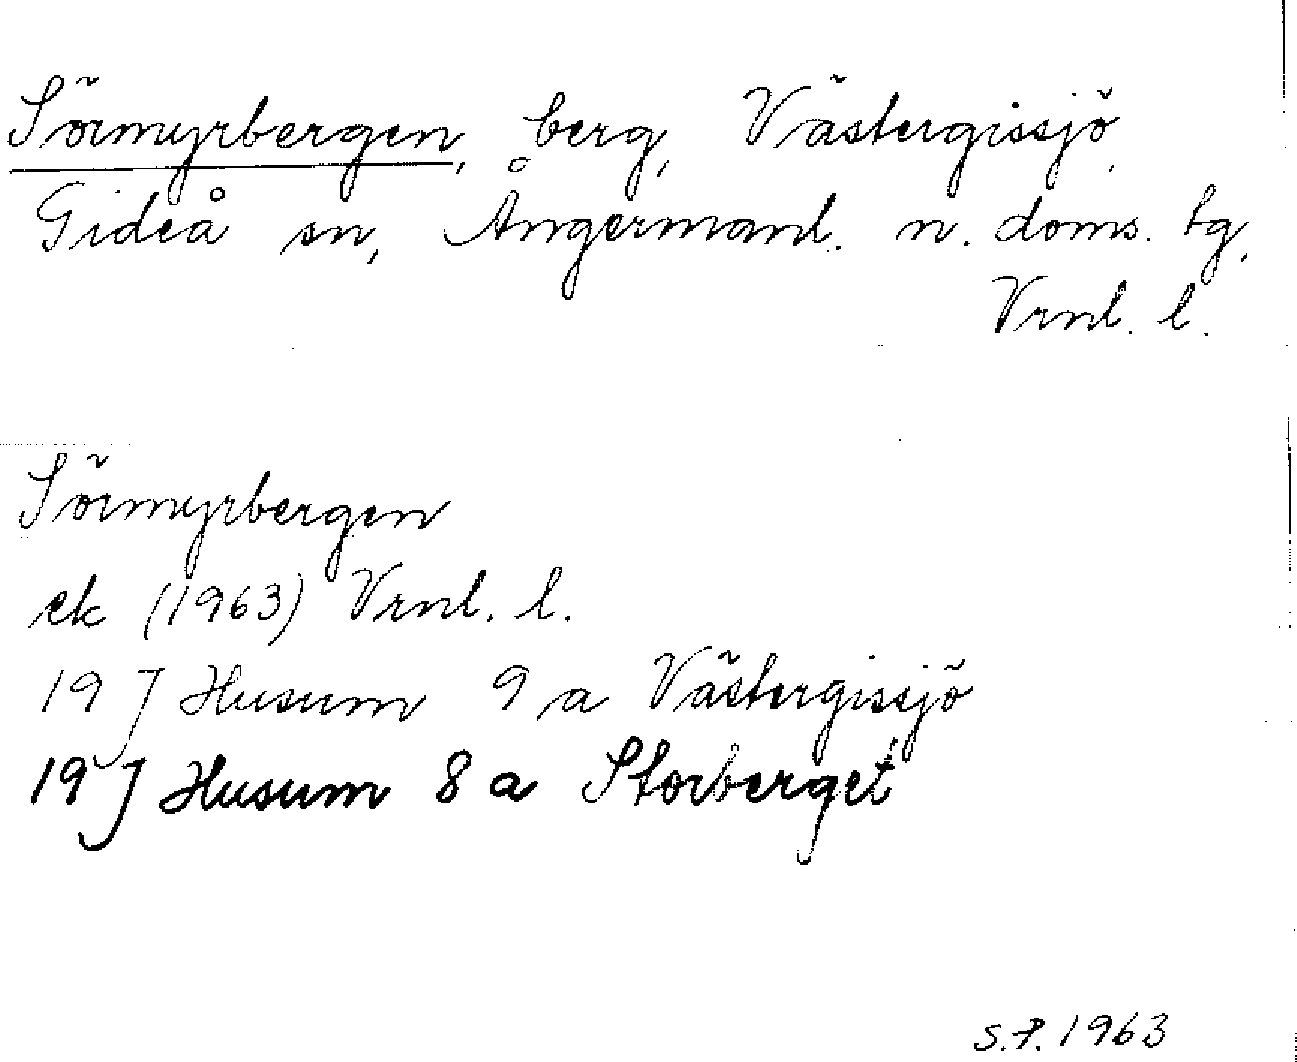 Sörmyrbergen, berg, Västergissjö,
Gideå sn, Ångermanl. n. doms. tg,
Vrnl. l.
Sörmyrbergen
ek (1963) Vrnl. l.
19 J Husum 9 a Västergissjö
19 J Husum 8 a Storberget
S.P. 1963